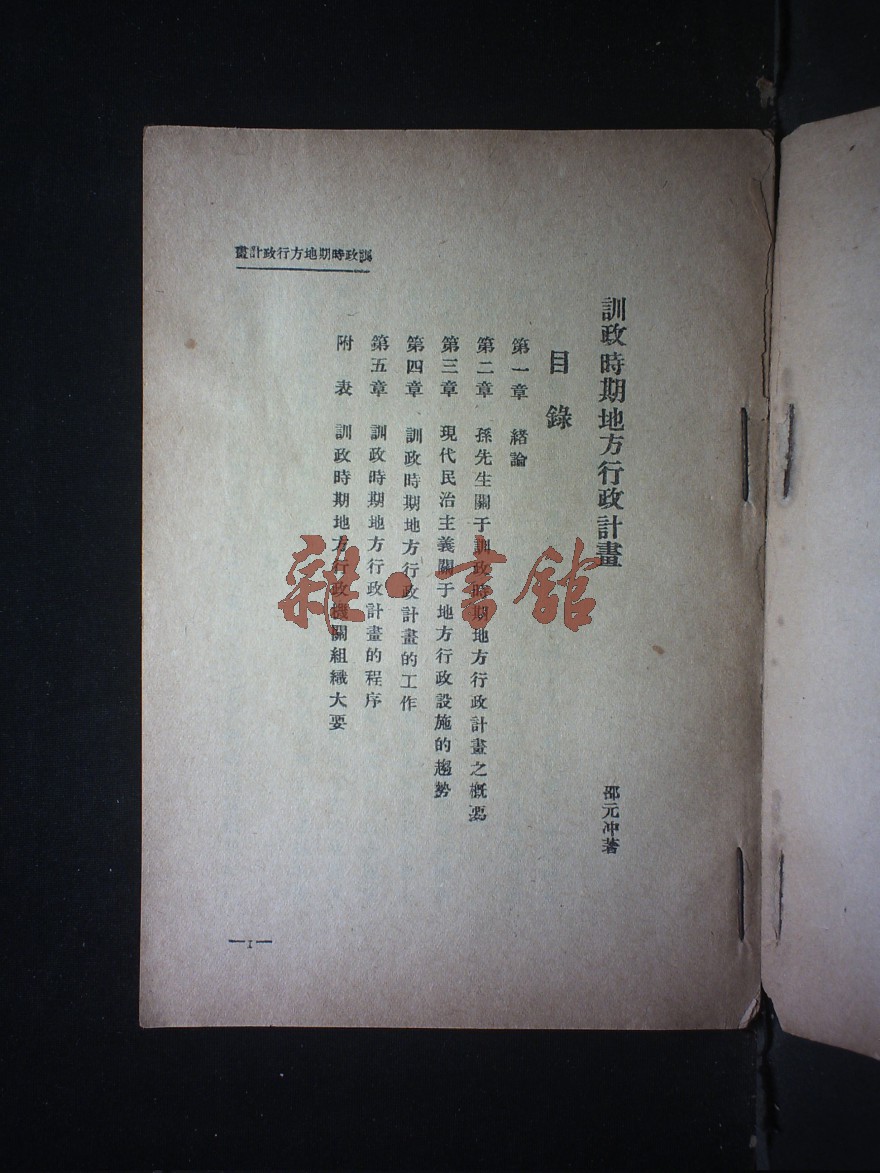 訓政時期地方行政計畫
邵元冲著
目錄
第一章 緒論
第二章 孫先生關于訓政時期地方行政計畫之概要
第三章 現代民治主義關于地方行政設施的趨勢
第四章 訓政時期地方行政計畫的工作
第五章 訓政時期地方行政計畫的程序
附表 訓政時期地方行政機關組織大要
訓政時期地方行政計畫
—1—
雜·書館